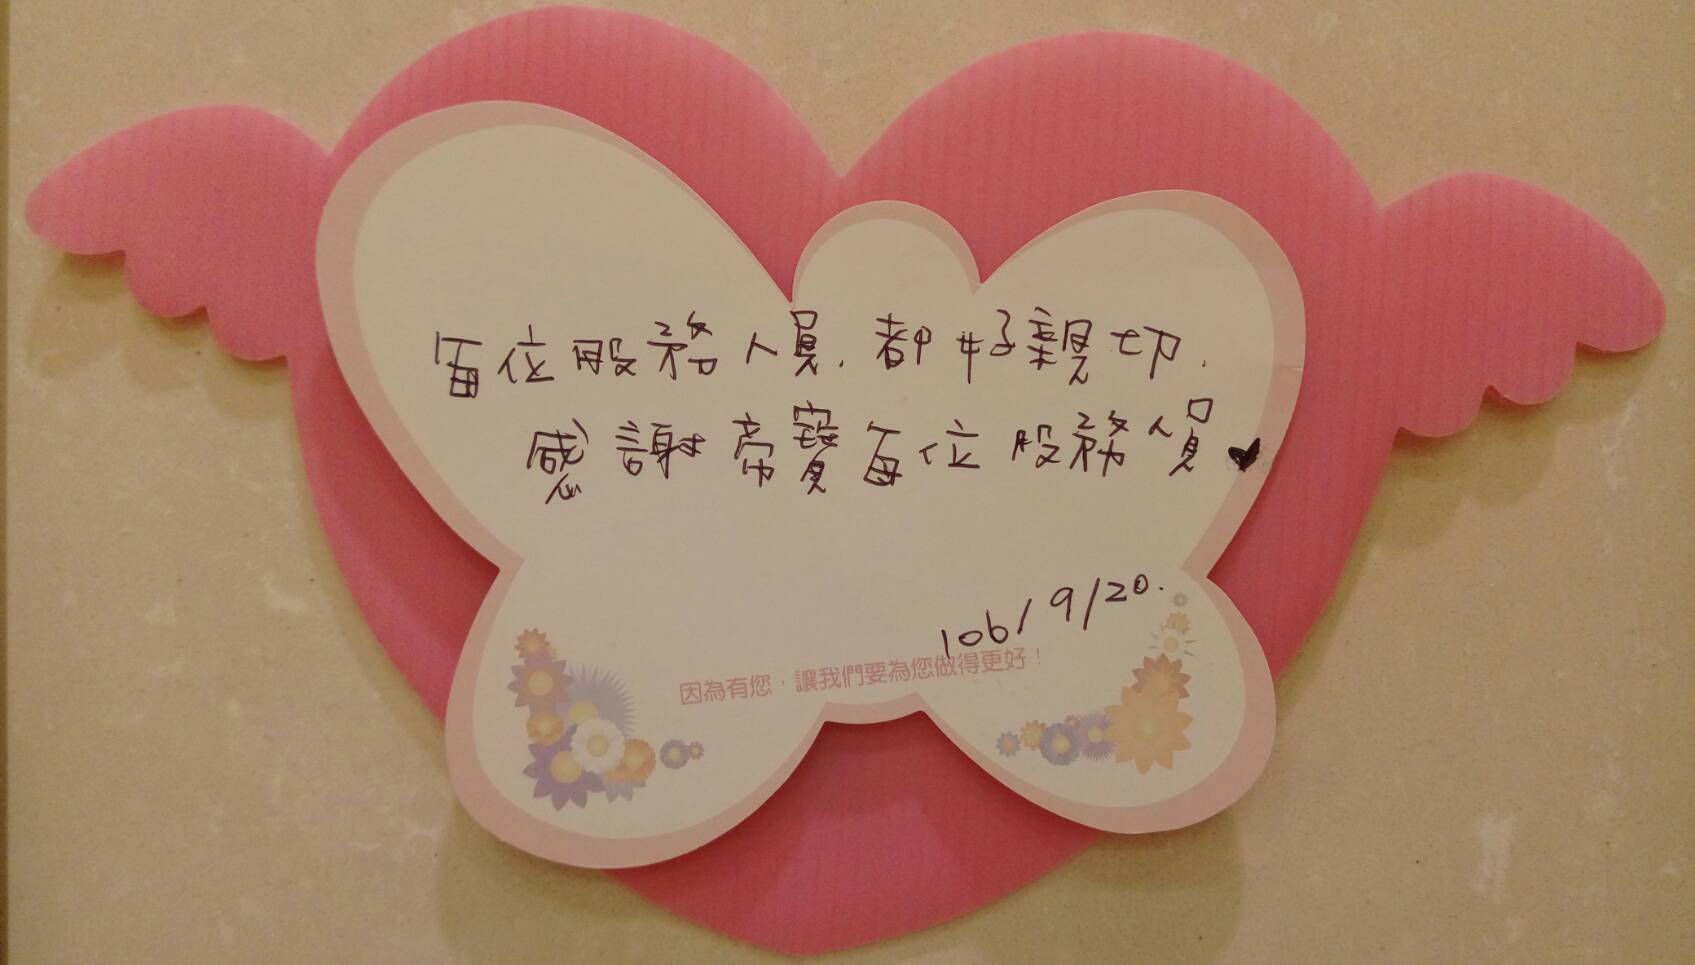 每位服務人員.都好親切.
感謝帝寶每位服務人員♥
106/9/20.
因為有您，讓我們要為您做得更好！